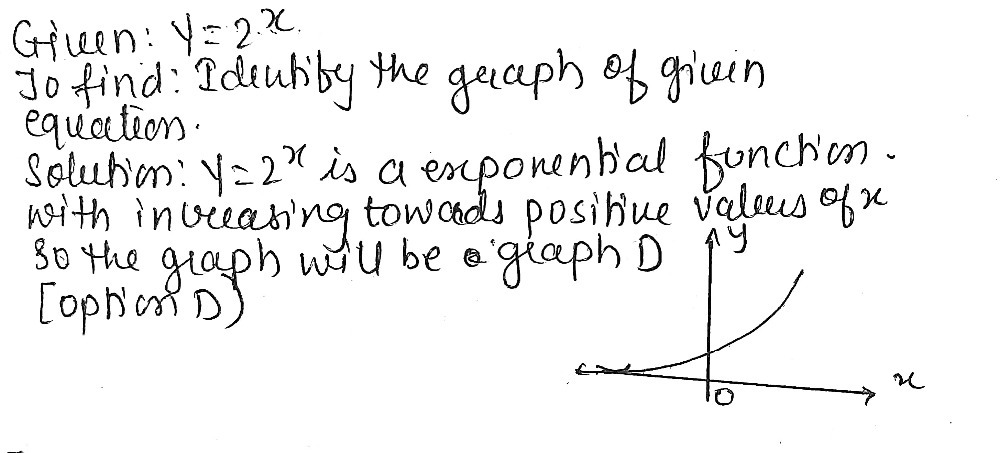 Given: y = 2^x.
To find: Identify the graph of given
equation.
Solution: y = 2^x is a exponential function.
with increasing towards positive values of x
So the graph will be a graph D
[option D)
y
x
O